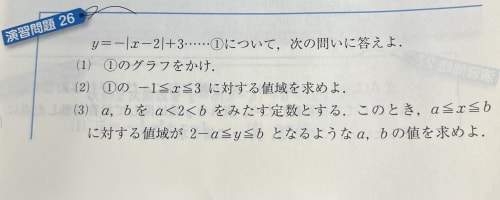 演習問題 26
y=-|x-2|+3……①について，次の問いに答えよ．
(1) ①のグラフをかけ．
(2) ①の -1≦x≦3 に対する値域を求めよ．
(3) a，b を a<2<b をみたす定数とする．このとき，a≦x≦b
に対する値域が 2-a≦y≦b となるような a，b の値を求めよ．